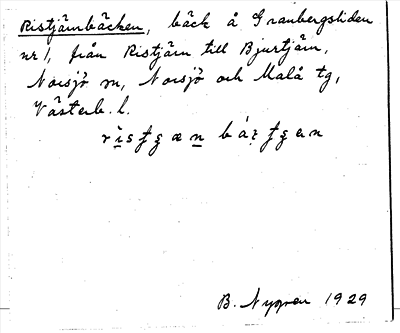 Ristjärnbäcken, bäck å Granbergsliden
nr 1, från Ristjärn till Bjurtjärn,
Norsjö sn, Norsjö och Malå tg,
Västerb. l.
B. Nygren 1929